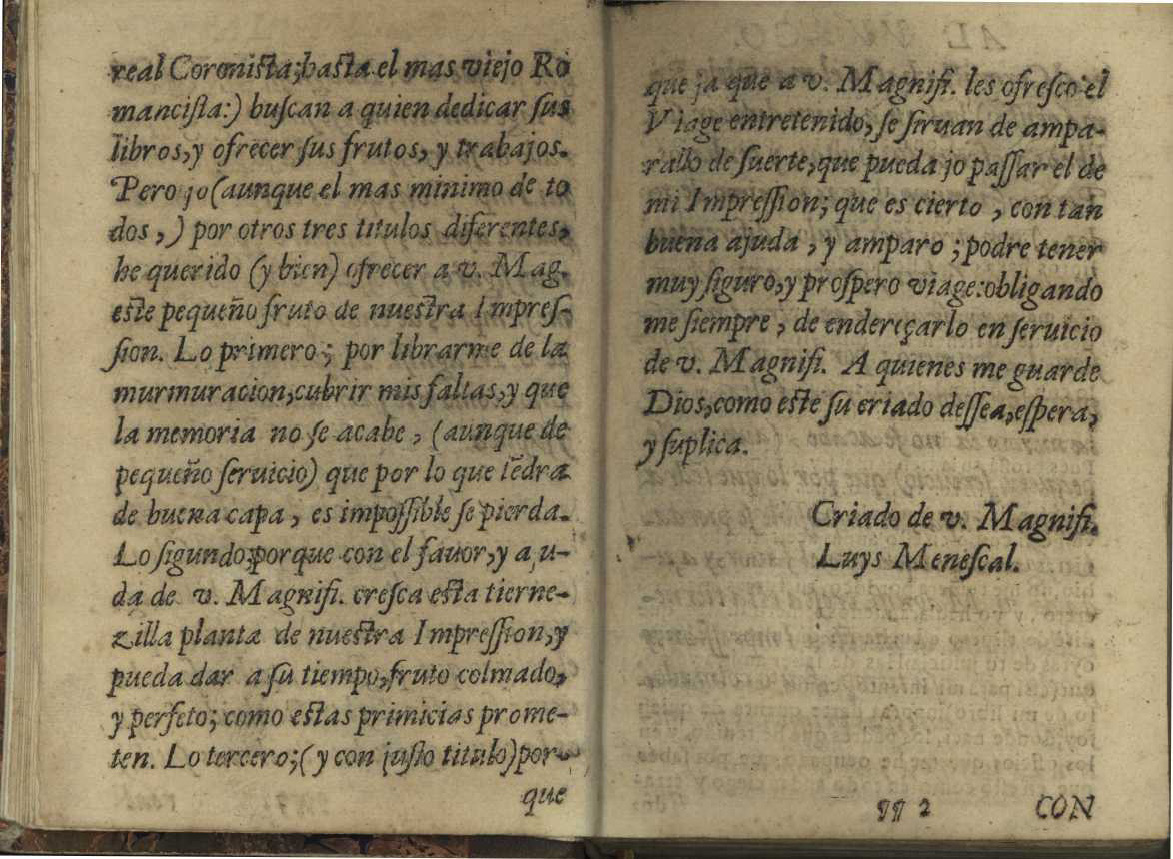 real Coronista; hasta el mas viejo Ro
mancista:) buscan a quien dedicar sus
libros, y ofrecer sus frutos, y trabajos.
Pero jo (aunque el mas minimo de to
dos,) por otros tres titulos diferentes,
he querido (y bien) ofrecer a v. Mag.
este pequeño fruto de nuestra Impres-
sion. Lo primero; por librarme de la
murmuracion, cubrir mis faltas, y que
la memoria no se acabe, (aunque de
pequeño seruicio) que por lo que tẽdra
de buena capa, es impossible se pierda.
Lo sigundo; porque con el fauor, y aju-
da de v. Magnifi. cresca esta tierne-
zilla planta de nuestra Impression, y
pueda dar a su tiempo, fruto colmado,
y perfeto; como estas primicias prome-
ten. Lo tercero; (y con justo titulo) por-
que
que ja que a v. Magnifi. les ofresco el
Viage entretenido, se siruan de ampa-
rallo de suerte, que pueda jo passar el de
mi Impression; que es cierto, con tan
buena ajuda, y amparo; podre tener
muy siguro, y prospero viage: obligando
me siempre, de endereçarlo en seruicio
de v. Magnifi. A quienes me guarde
Dios, como este su criado dessea, espera,
y suplica.
Criado de v. Magnifi.
Luys Menescal.
¶¶ 2 CON